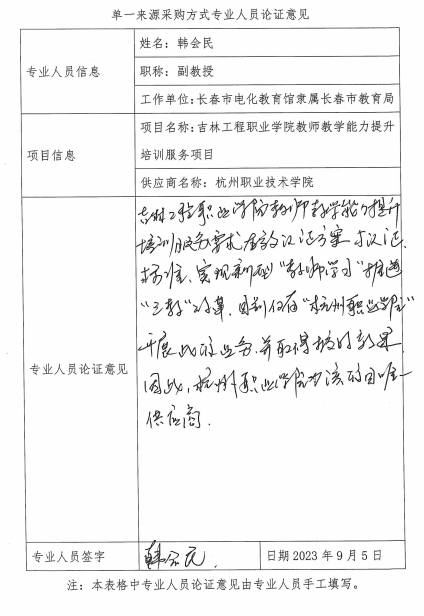 单一来源采购方式专业人员论证意见
专业人员信息
姓名：韩会民
职称：副教授
工作单位：长春市电化教育馆隶属长春市教育局
项目信息
项目名称：吉林工程职业学院教师教学能力提升
培训服务项目
供应商名称：杭州职业技术学院
专业人员论证意见
吉林工程职业学院教师教学能力提升
培训服务要求 认证方案
标准，实现新型“教师学习”推进
“三教”改革，目前仅有“杭州职业学院”
开展此的业务，并取得 的效果，
因此，杭州职业学院为该项目唯一
供应商．
专业人员签字
韩会民
日期 2023 年 9 月 5 日
注：本表格中专业人员论证意见由专业人员手工填写。